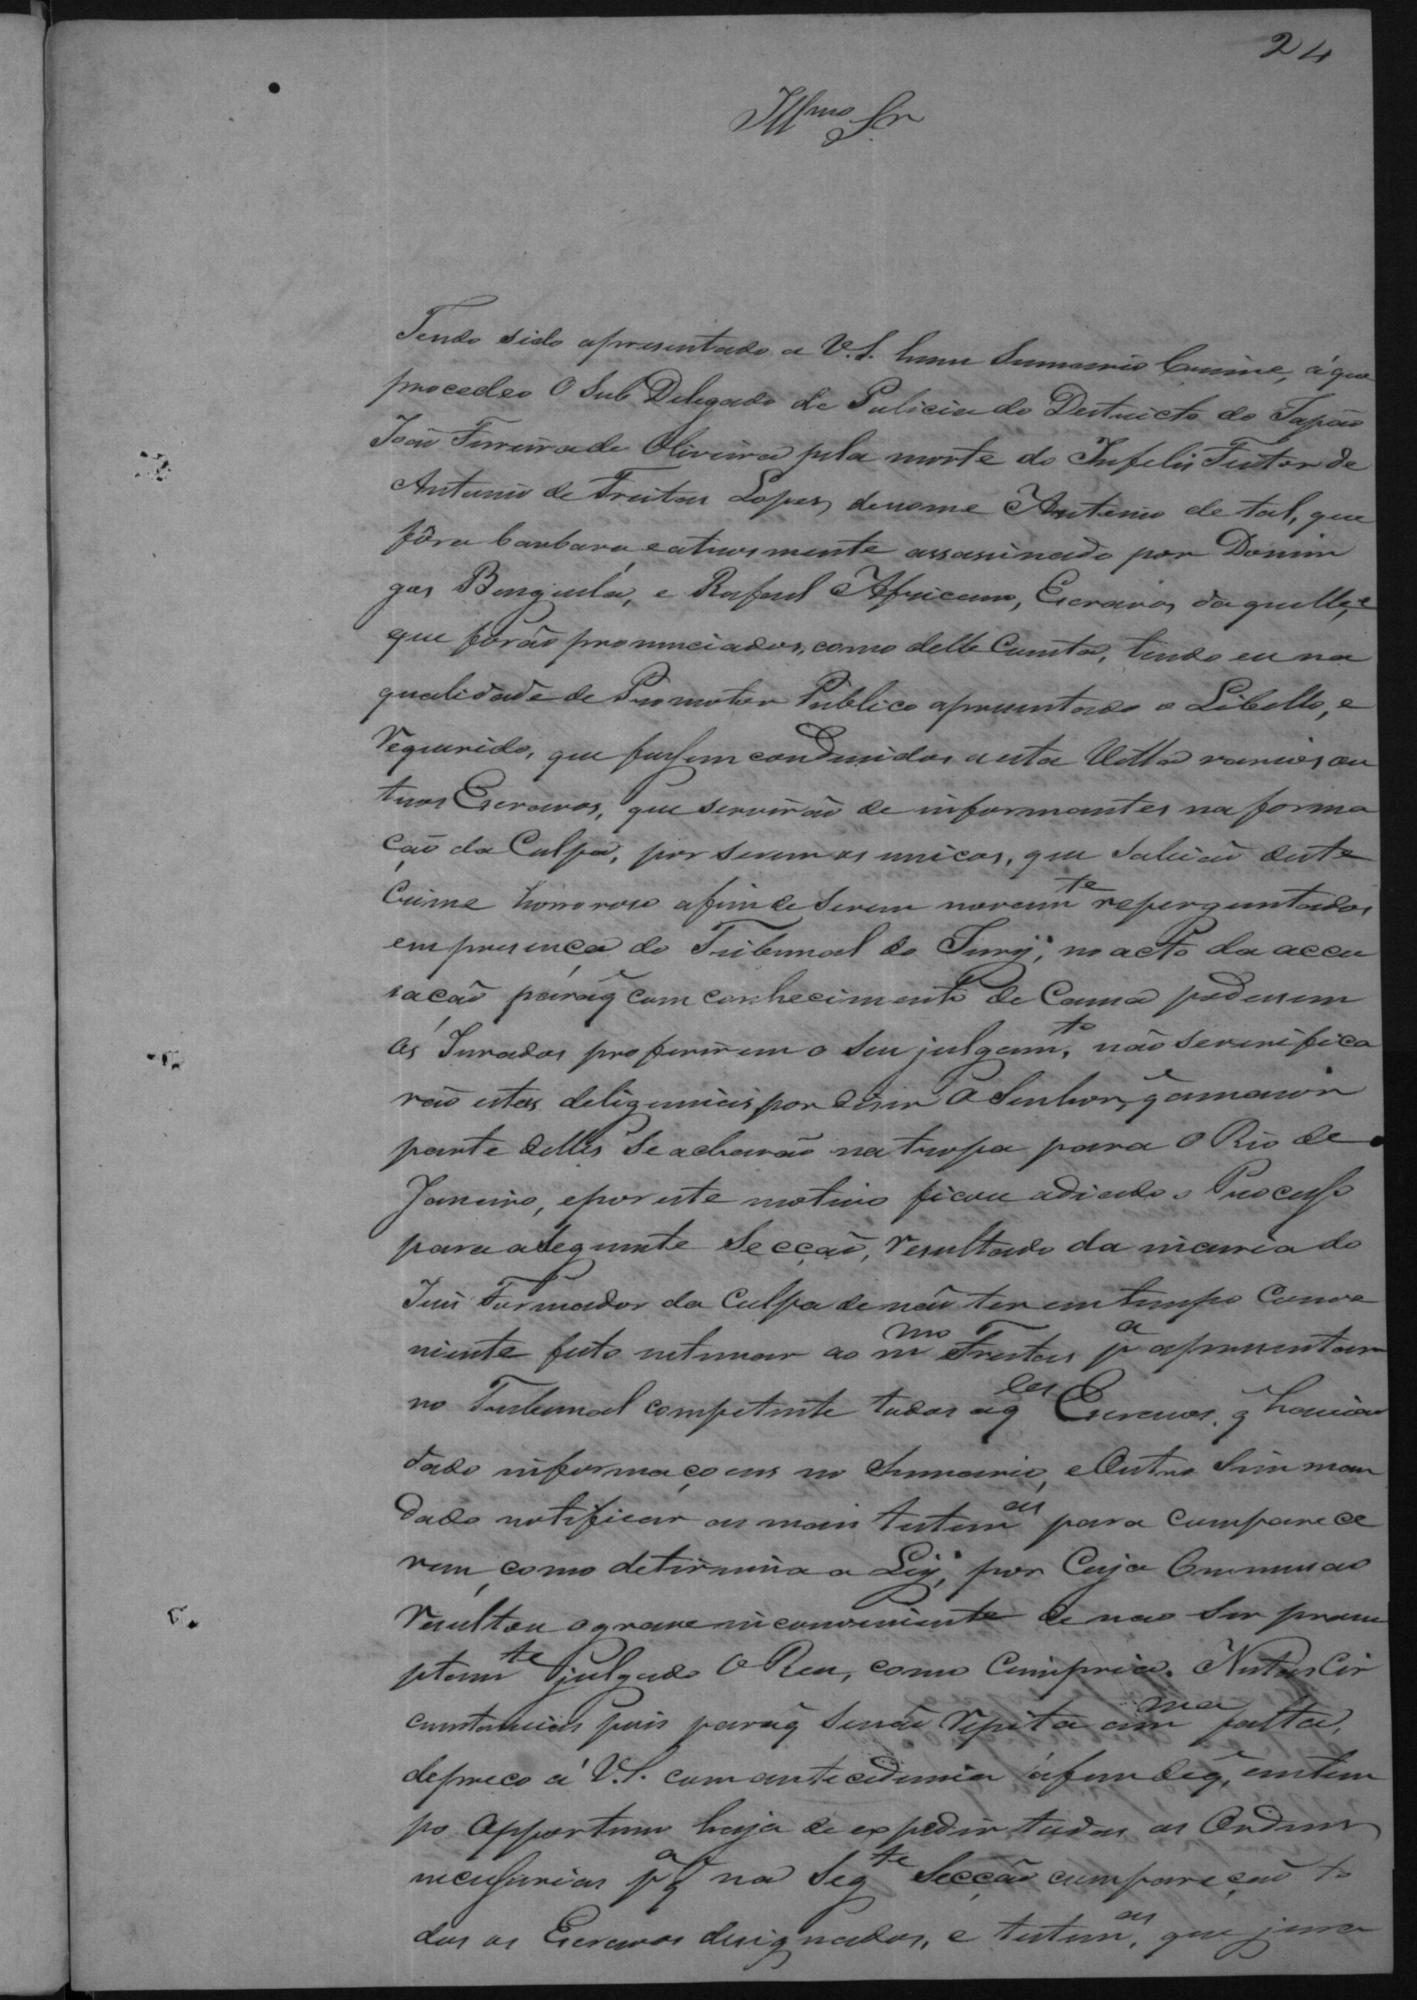 24
Illmo Snr
Tendo sido apresentado a V.S. hum Summario Crime, á que
procedeo O Sub Delegado de Policia do Destricto do
João Ferreira de Oliveira pela morte do Infelis Feitor de
Antonio de Freitas Lopes, de nome Antonio de tal, que
fôra barbara, e atrosmente assassinado por Domin
gos Benguela, e Rafael Africano, Escravos daquelle, e
que forão pronunciados, como delle Consta, tendo eu na
qualidade de Promotor Publico apresentado o Libello, e
requerido, que fossem condusidos a esta Villa varios ou
tros Escravos, que servirão de informantes na forma
ção da Culpa, por serem os unicos, que sabião deste
Crime horroroso a fim de serem novamte reperguntados
em presença do Tribunal do Jury; no acto da accu
sação paraq̃ com conhecimento de Causa podessem
os Jurados proferirem o seu julgamto, não se verifica
rão estas deligencias por diser O Senhor, q̃ a maior
parte delles se achavão na tropa para o Rio de
Janeiro, e por este motivo ficou adiado o Processo
para a Seguinte Secção, resultado da incuria do
Juis Formador da Culpa de não ter em tempo Conve
niente feito intimar ao mmo Freitas pa apresentar
no Tribunal competente todos aqles Escravos, q̃ havião
dado informaçoens no Summario, e Outro Sim man
dado notificar as mais testemas para comparece
rem, como determina a Ley; por Cuja Ommissão
resultou o grave inconveniente de nao Ser prom
ptamte julgado O Reu, como Cumpria. Nestas Cir
cunstancias pois paraq̃ senão repita a mma falta,
depreco á V.S. com antecedencia áfim deq̃, em tem
po Opportuno haja de expedir todas as Ordens
necessarias pa q̃ na Segte Secção compareção to
dos os Escravos designados, e testemas, que jura